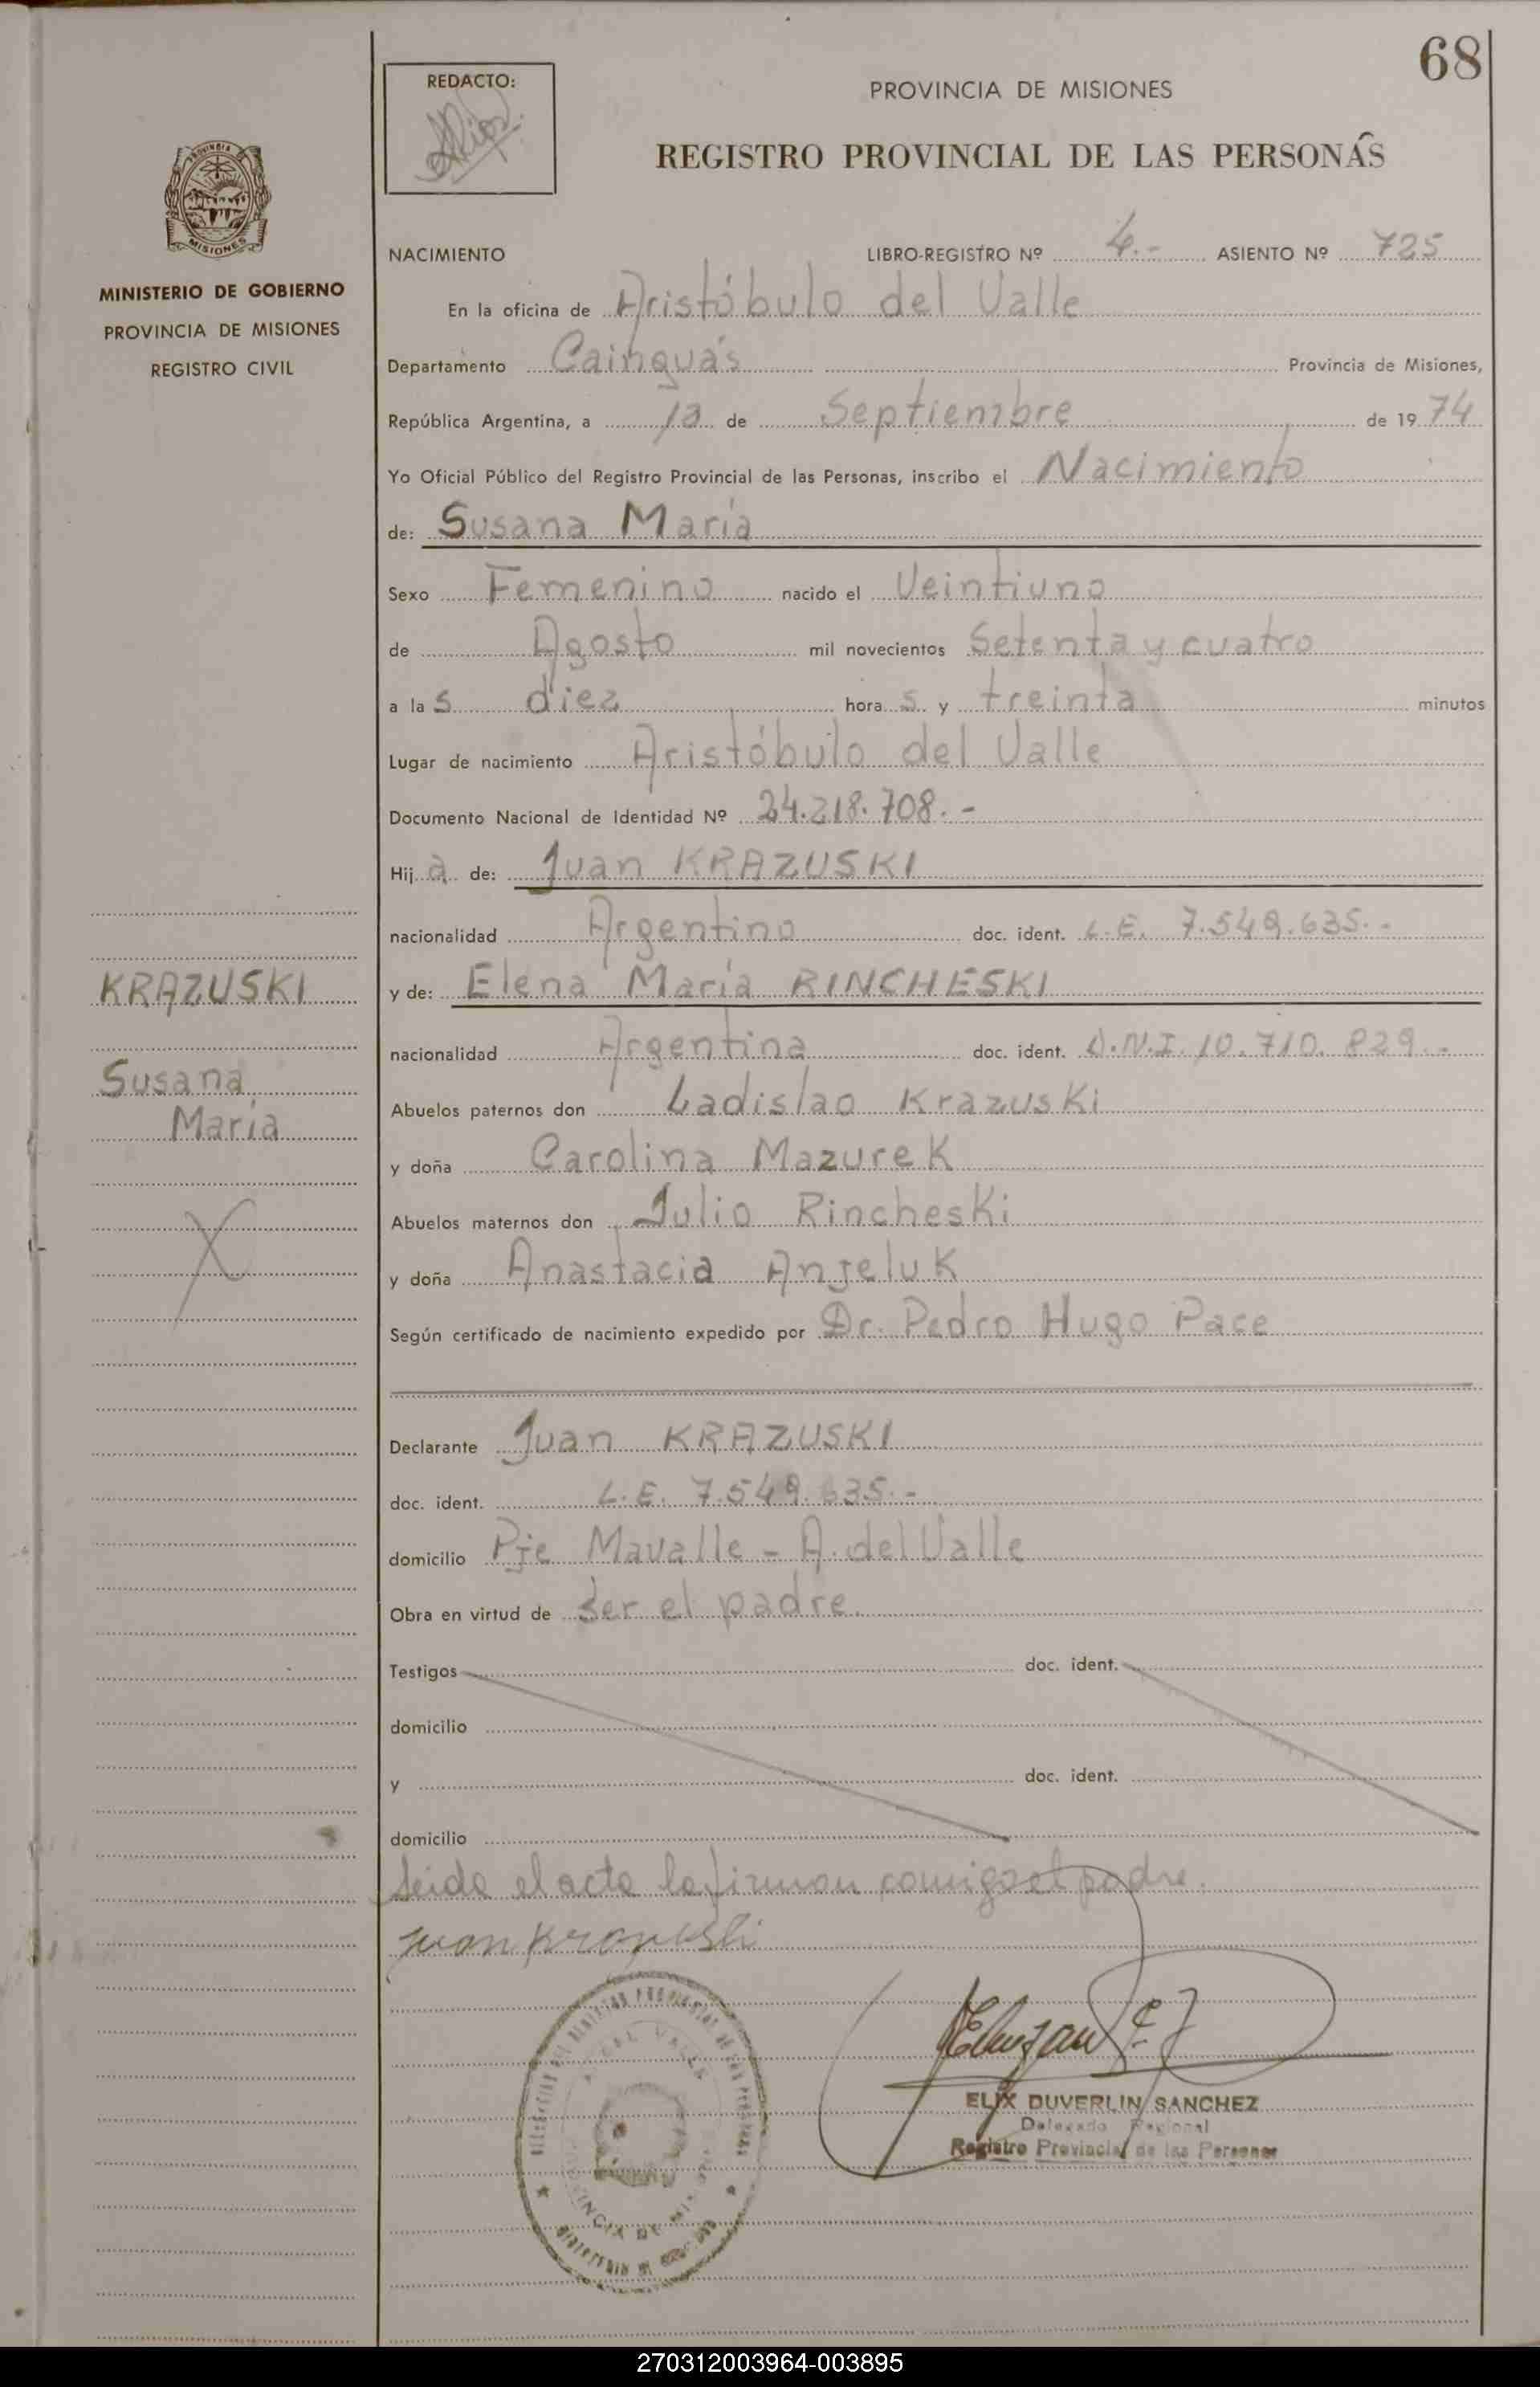 68
REDACTO:
PROVINCIA DE MISIONES
REGISTRO PROVINCIAL DE LAS PERSONAS
PROVINCIA
MISIONES
MINISTERIO DE GOBIERNO
PROVINCIA DE MISIONES
REGISTRO CIVIL
NACIMIENTO LIBRO-REGISTRO Nº 4.- ASIENTO Nº 725
En la oficina de Aristóbulo del Valle
Departamento Cainguás Provincia de Misiones,
República Argentina, a de Septiembre de 19 74
Yo Oficial Público del Registro Provincial de las Personas, inscribo el Nacimiento
de: Susana María
Sexo Femenino nacido el Veintiuno
de Agosto mil novecientos Setenta y cuatro
a la s diez hora s y treinta minutos
Lugar de nacimiento Aristóbulo del Valle
Documento Nacional de Identidad Nº 24.218.708.-
Hij a de: Juan KRAZUSKI
nacionalidad Argentino doc. ident. L.E. 7.549.635.-
KRAZUSKI
y de: Elena María RINCHESKI
nacionalidad Argentina doc. ident. D.N.I. 10.710.829.-
Susana
María
Abuelos paternos don Ladislao Krazuski
y doña Carolina Mazurek
Abuelos maternos don Julio Rincheski
y doña Anastacia Anjeluk
Según certificado de nacimiento expedido por Dr. Pedro Hugo Pace
Declarante Juan KRAZUSKI
doc. ident. L.E. 7.549.635.-
domicilio Pje Mavalle - A. del Valle
Obra en virtud de Ser el padre.
Testigos doc. ident.
domicilio
y doc. ident.
domicilio
Leida el acta la firman comigo el padre.
ELIX DUVERLIN SANCHEZ
Delegado Regional
Registro Provincial de las Personas
270312003964-003895